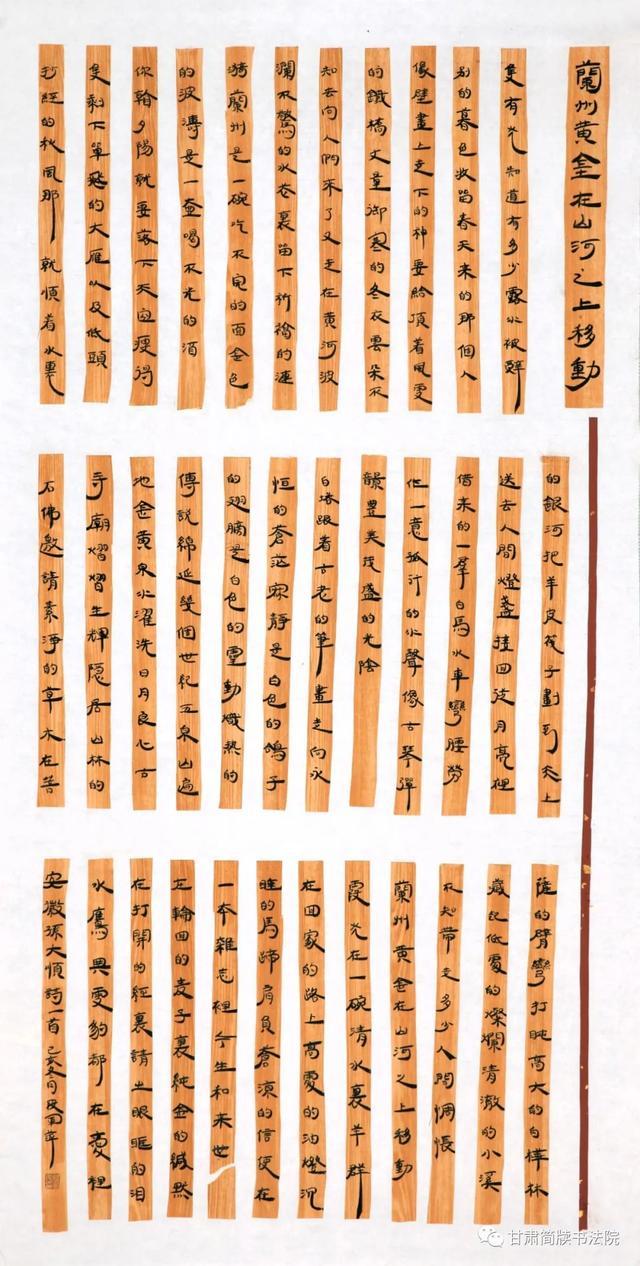 蘭州黃金在山河之上移動
隻有光知道有多少露水被辭
別的暮色收留春天来的那個人
像壁畫上走下的神要給頂着風雪
的鐵橋丈量御寒的冬衣雲朵不
知去向人們来了又走在黃河波
瀾不驚的水卷裏留下祈禱的漣
漪蘭州是一碗吃不完的面金色
的波濤是一壺喝不光的酒
你翰夕陽就要落下天空瘦得
隻剩下單飛的大雁以及低頭
打經的秋風那就順着水裏
的銀河把羊皮筏子劃到天上
送去人間燈盞接回弦月亮在
借来的一群白馬水車彎腰勞
作一意孤行的水聲像古琴彈
韻豐美茂盛的光陰
白塔跟着古老的筆畫走向永
恒的蒼茫寂靜是白色的鴿子
的翅膀是白色的靈動熾熱的
傳說綿延幾個世紀五泉山遍
地金黃泉水濯洗日月良心古
寺廟熠熠生輝隱居山林的
石佛邀請素淨的草木在菩
薩的臂彎打盹高大的白樺林
藏起低處的燦爛清澈的小溪
不知帶走多少人間惆悵
蘭州黃金在山河之上移動
霞光在一碗清水裏羊群
在回家的路上高處的油燈沉
睡的馬蹄肩負蒼涼的信使在
一本雜志裡今生和来世
在輪回的麦子裏純金的緘默
在打開的經裏請出眼眶的泪
水鷹與雪豹都在
安徽張大順詩一首 己亥冬月
甘肃简牍书法院